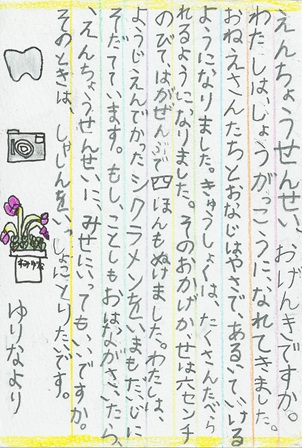 えんちょうせんせい、おげんきですか。
わたしは、しょうがっこうになれてきました。
おねえさんたちとおなじはやさで、あるいていける
ようになりました。きゅうしょくは、たくさんたべら
れるようになりました。そのおかげかせは六センチ
のびて、はがぜんぶで四ほんもぬけました。わたしは、
ようじえんでかったシクラメンをいまもだいじに
そだています。もし、ことしもおはながさいたら、
、えんちょうせんせいに、みせにいってもいいですか。
そのときは、しゃしんをいっしょにとりたいです。
ゆりなより